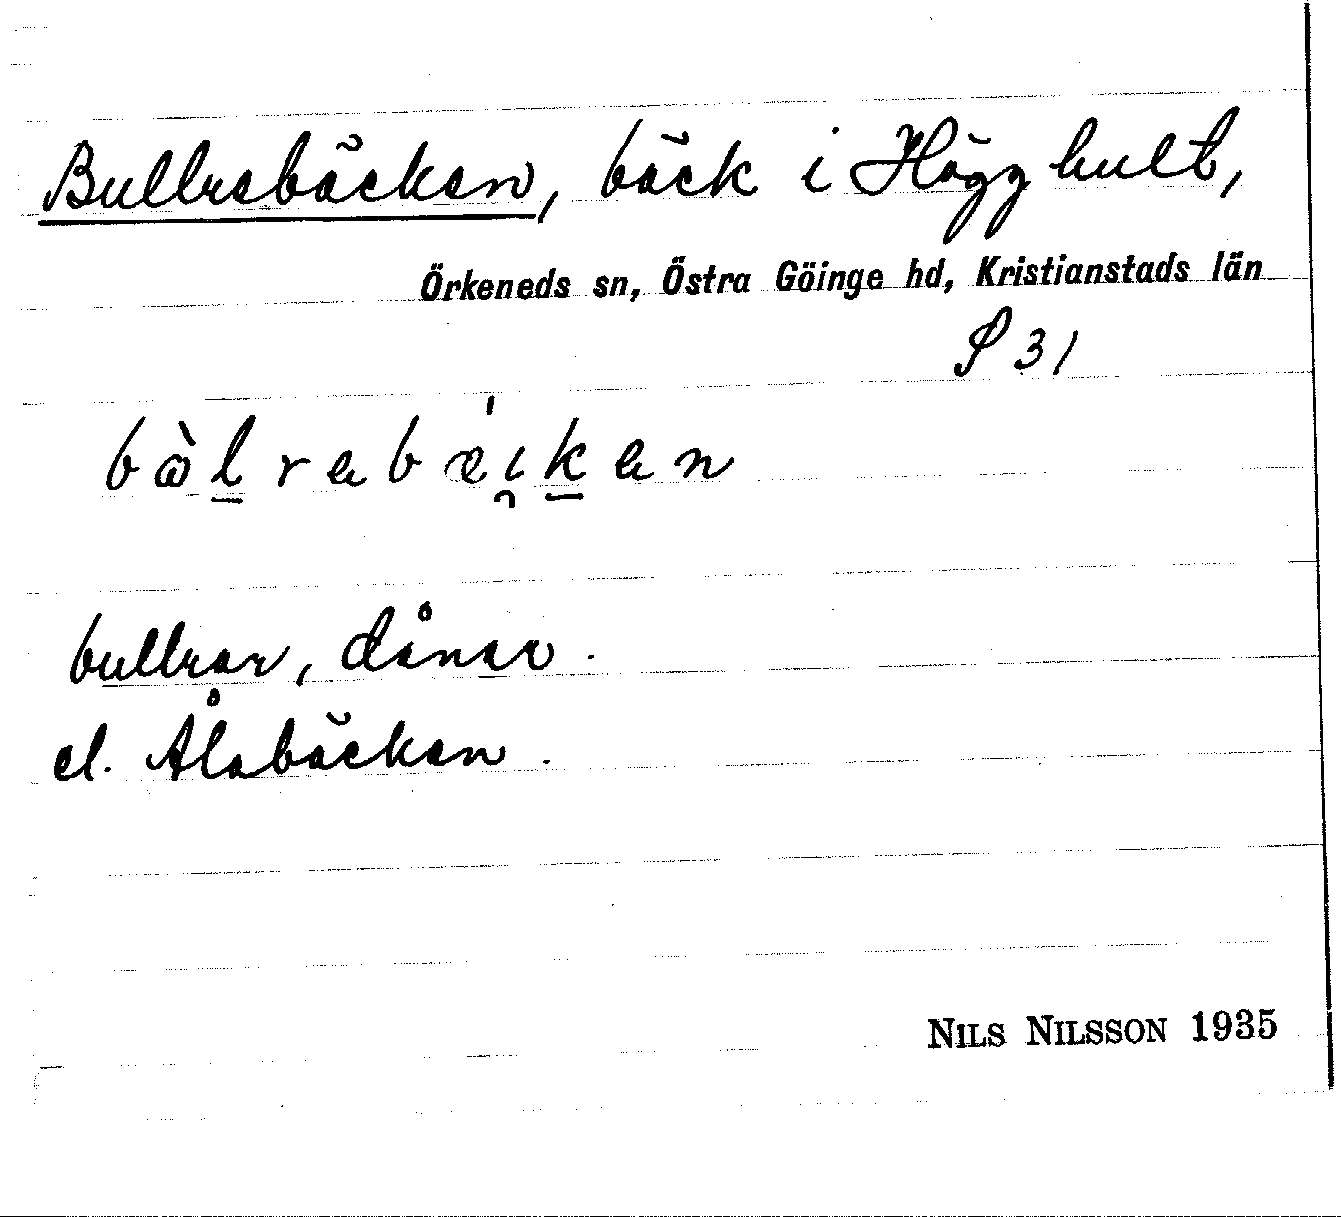 Bullrabäcken, bäck i Högghult,
Örkeneds sn, Östra Göinge hd, Kristianstads län
S 31
bullrar, dånar.
el. Ålabäcken.
NILS NILSSON 1935